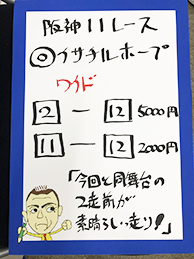 阪神11レース
◎クサナルホープ
ワイド
2 — 12 5000円
11 — 12 2000円
「今回と同舞台の
2走前が
素晴らしい走り!」